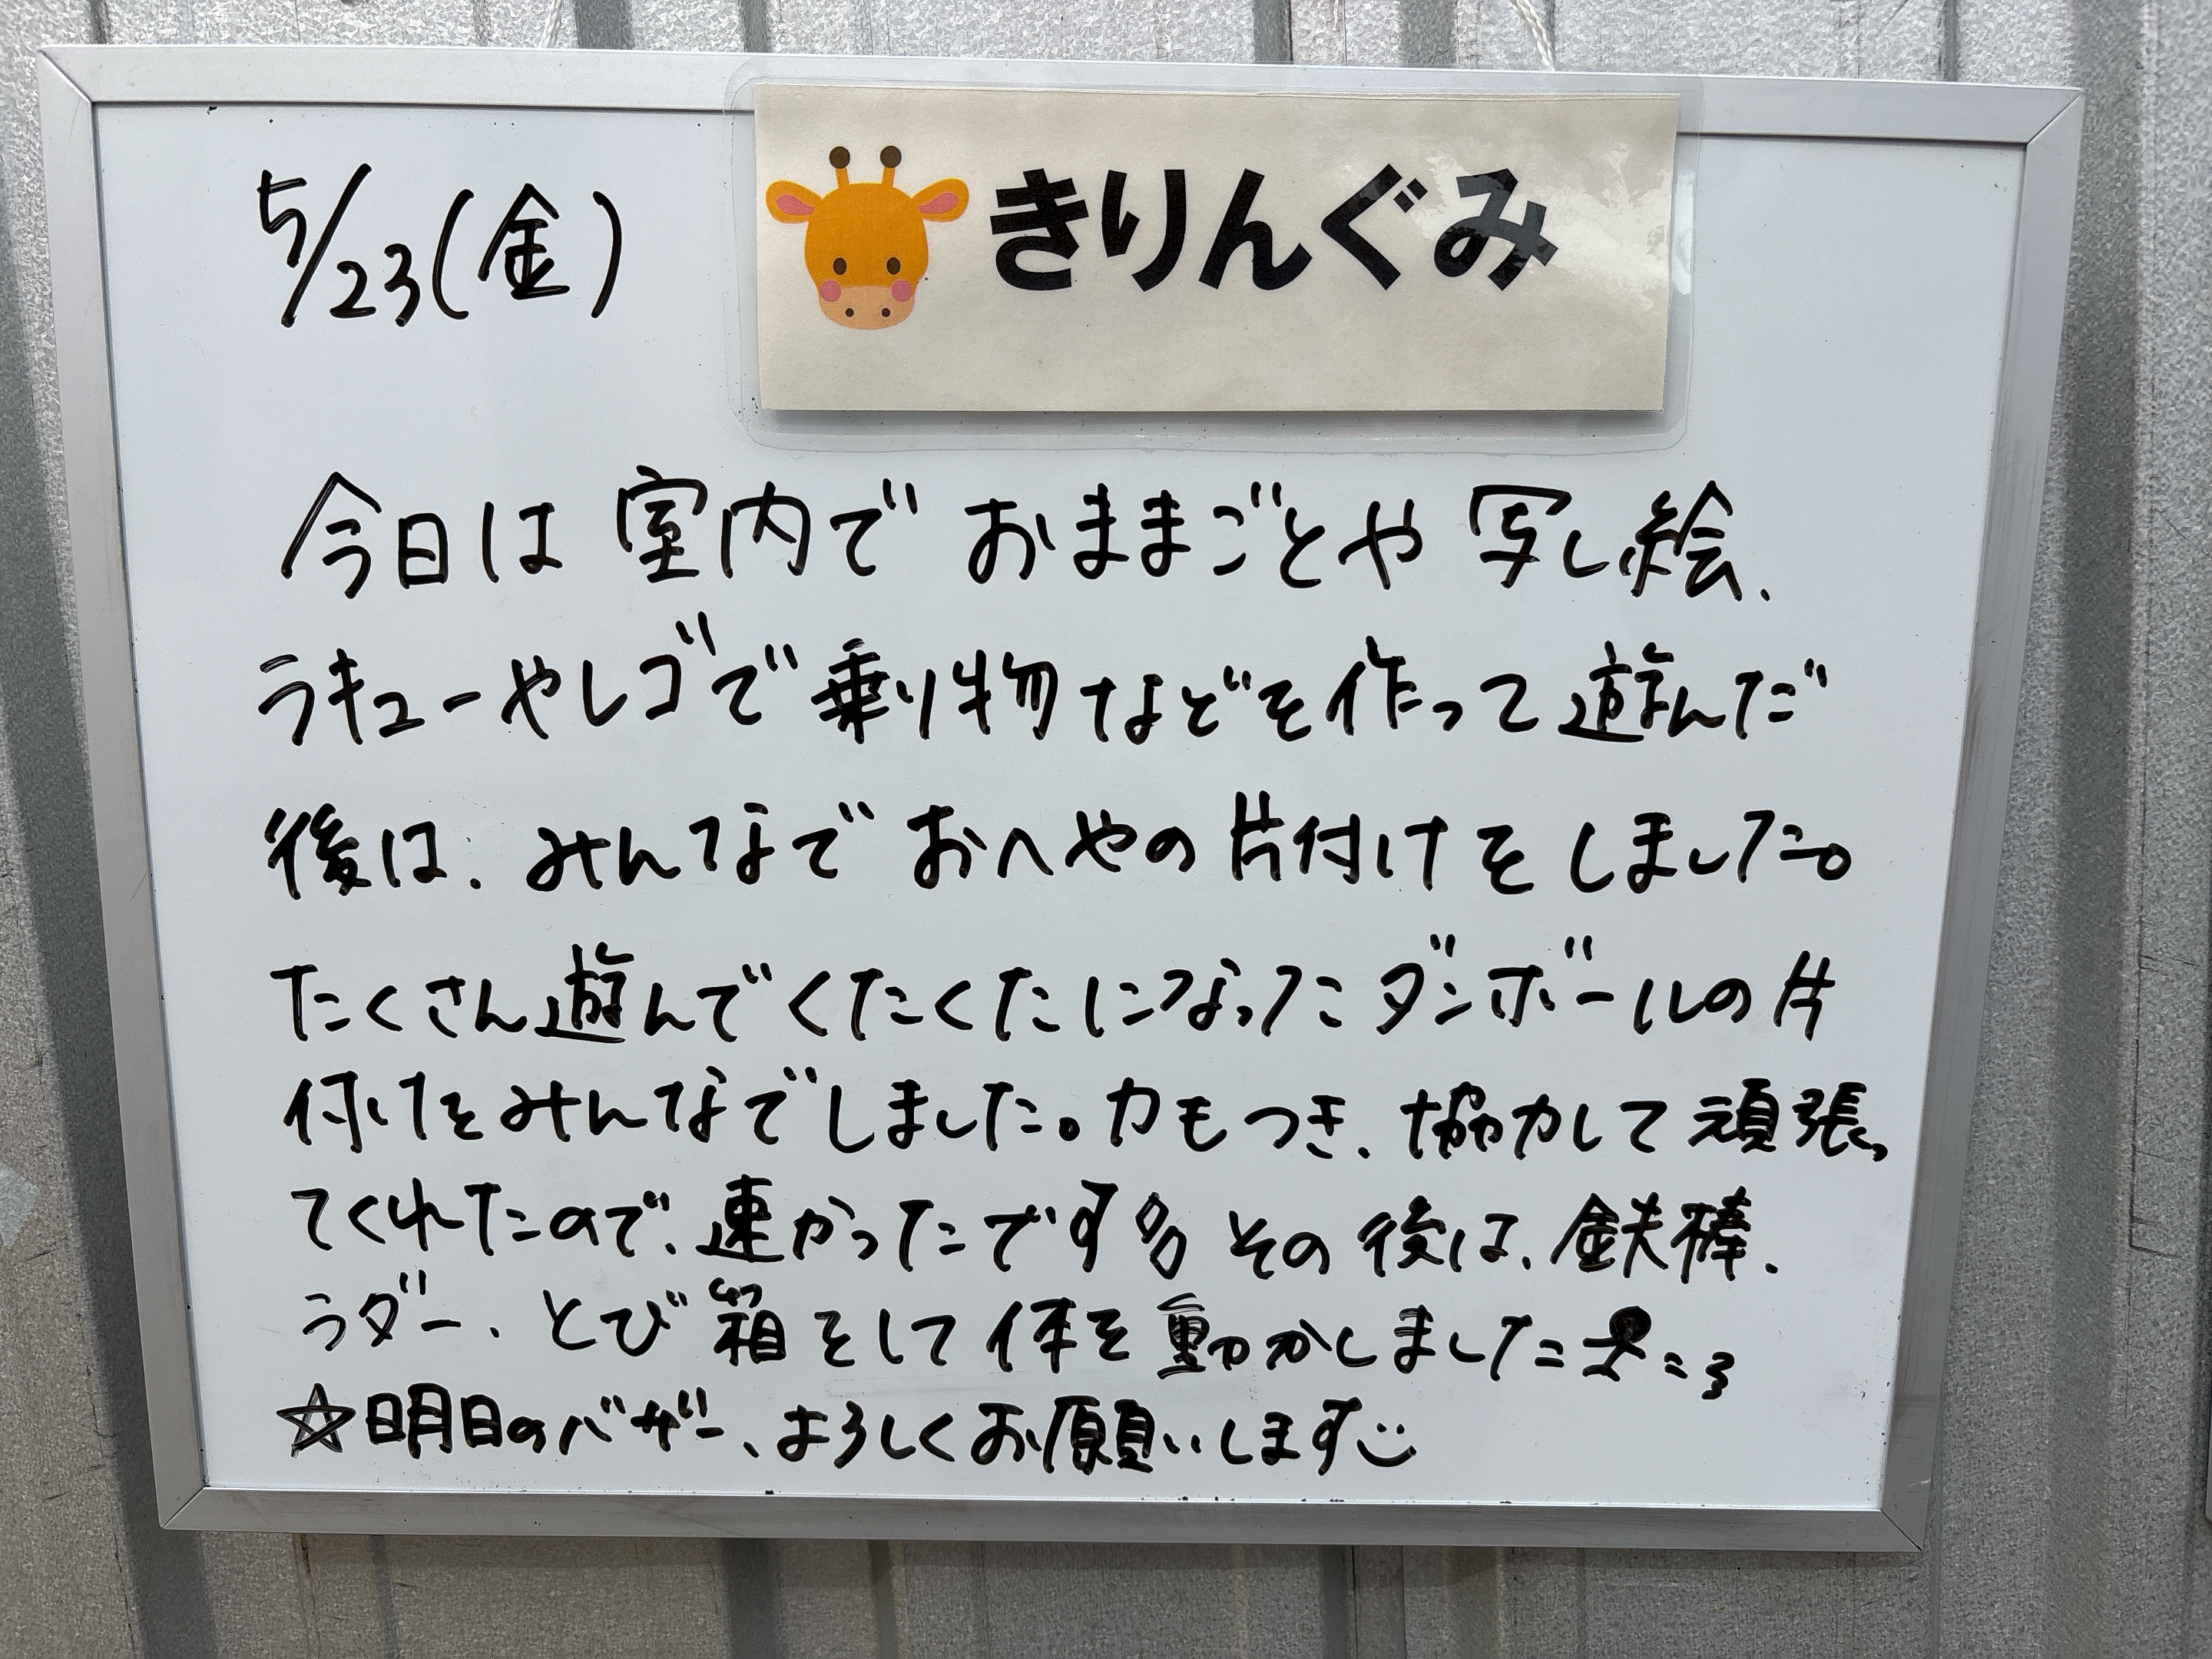 5/23(金)
きりんぐみ
今日は室内でおままごとや写し絵、
ラキューやレゴで乗り物などを作って遊んだ
後は、みんなでおへやの片付けをしました。
たくさん遊んでくたくたになったダンボールの片
付けをみんなでしました。力もつき、協力して頑張っ
てくれたので、速かったです その後は、鉄棒、
ラダー、とび箱をして体を動かしました
☆明日のバザー、よろしくお願いします